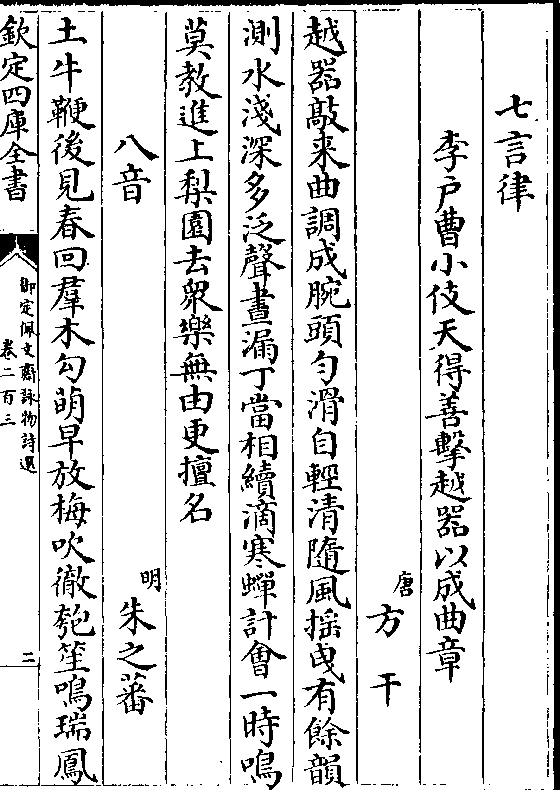 七言律
李户曹小伎天得善擊越器以成曲章
唐方干
越器敲来曲調成腕頭勻滑自輕清隨風摇曳有餘韻
測水淺深多泛聲晝漏丁當相續滴寒蟬計會一時鳴
莫教進上梨園去衆樂無由更擅名
八音
明朱之蕃
土牛鞭後見春回羣木勾萌早放梅吹徹匏笙鳴瑞鳳
欽定四庫全書
御定佩文齋詠物詩選
卷二百三
二